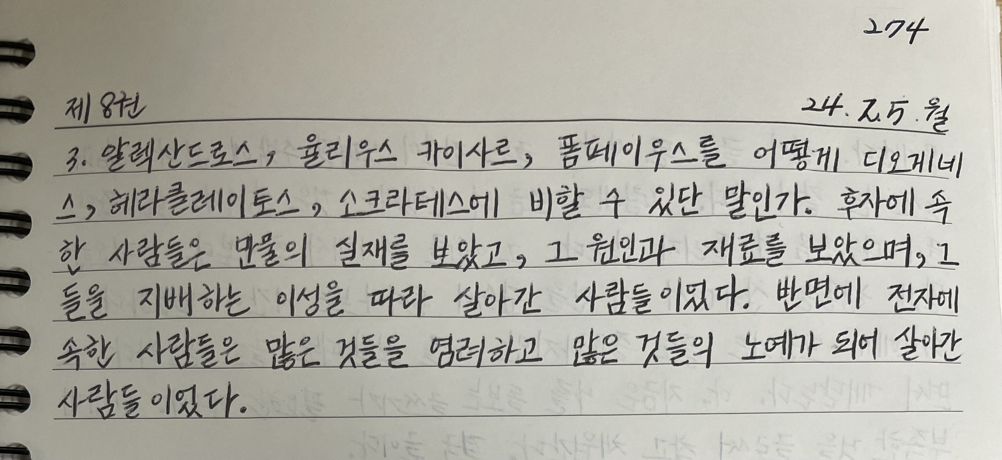 274
제 8권 24. 2. 5. 월
3. 알렉산드로스, 율리우스 카이사르, 폼페이우스를 어떻게 디오게네
스, 헤라클레이토스, 소크라테스에 비할 수 있단 말인가. 후자에 속
한 사람들은 만물의 실재를 보았고, 그 원인과 재료를 보았으며, 그
들을 지배하는 이성을 따라 살아간 사람들이었다. 반면에 전자에
속한 사람들은 많은 것들을 염려하고 많은 것들의 노예가 되어 살아간
사람들이었다.